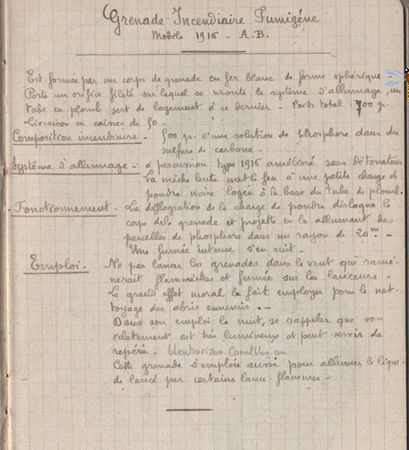 Grenade Incendiaire Fumigène
Modèle 1916 - A.B.
Est formée par un corps de grenade en fer blanc de forme sphérique
Porte un orifice fileté sur lequel se monte le système d'allumage, un
tube en plomb sert de logement à ce dernier - Poids total 700 gr.
Livraison en caisses de 50 -
Composition incendiaire - 500 gr. d'une solution de phosphore dans du
sulfure de carbone -
Système d'allumage - à percussion type 1916 amélioré sous Détonateur
La mèche lente met le feu à une petite charge de
poudre noire logée à la base du tube de plomb.
Fonctionnement - La déflagration de la charge de poudre disloque le
corps de la grenade et projette en les allumant des
parcelles de phosphore dans un rayon de 20m -
Une fumée intense s'en suit -
Emploi - Ne pas lancer les grenades dans le vent qui ramè-
nerait flammèches et fumée sur les lanceurs -
Le grand effet moral la fait employer pour le net-
toyage des abris ennemis. -
Dans son emploi la nuit, se rappeler que son
éclatement est très lumineux et peut servir de
repère - bleuhorizon.canalblog.com
Cette grenade s'emploie aussi pour allumer le liqui-
de lancé par certains lance-flammes -